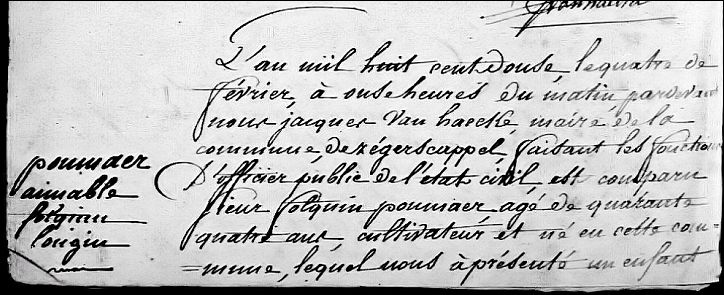 L'an mil huit cent douse, le quatre de
février, à onse heures du matin pardevant
nous jacques Van haecke, maire de la
commune, de zégerscappel, faisant les fonctions
D'officier public de l'état civil, est comparu
sieur folquin pounaer, agé de quarante
quatre ans, cultivateur et né en cette com-
=mune, lequel nous à présenté un enfant
pounaer
aimable
folquin
longin